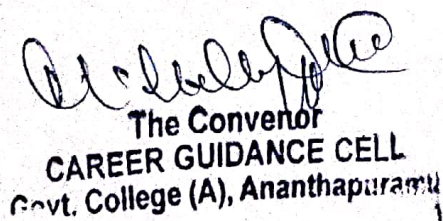 The Convenor
CAREER GUIDANCE CELL
Govt. College (A), Ananthapuramu